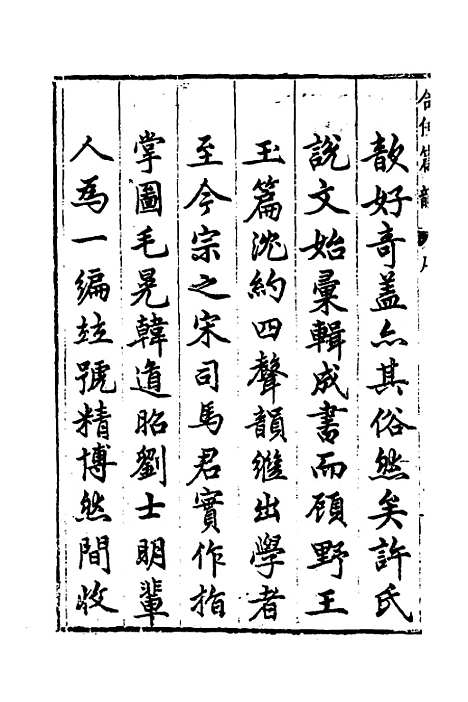 歆好奇盖亦其俗然矣許氏
說文始彙輯成書而頋野王
玉篇沈約四聲韻繼出學者
至今宗之宋司馬君實作指
掌圖毛晃韓道昭劉士明輩
人為一編竝號精博然間收